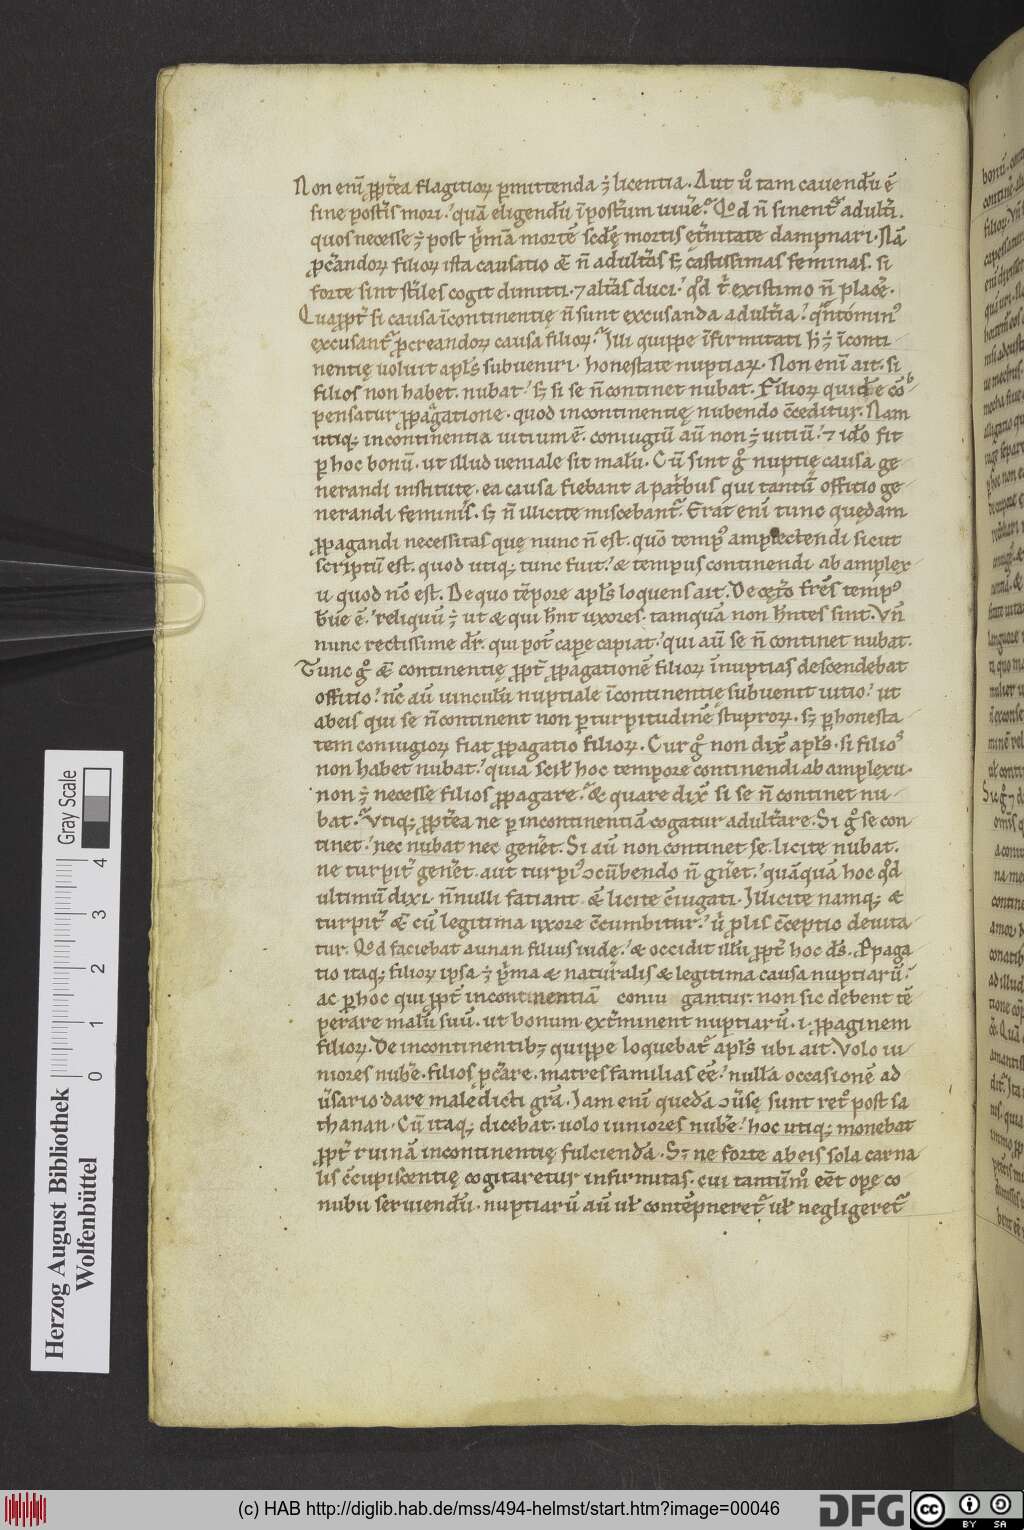 Non eni̅ ꝓpt̾ea flagitioꝝ ꝑmittenda ÷ licentia. Aut uͦ tam cauendu̅ e̅
sine post̾is mori. quā eligendū i̅postꝛum uiu̾e. Qd n̅ sinent᷑ adult̾i.
quos necesse ÷ post p̾mā mortē scd̅ę mortis ęt̾nitate dampnari. Nā
ꝓc̾andoꝝ filioꝝ ista causatio & n̅ adult̾as sꝫ castissimas feminas. si
forte sint st̾iles cogit dimitti. ⁊ alt̾as duci. qd t̾ existimo n̅ place̾.
Quaꝓpt̾ si causa i̅continentię n̅ sunt excusanda adult̾ia. q̾ntomin⁹
excusant᷑ ꝓcreandoꝝ causa filioꝝ. Illi quippe i̅firmitati h̅ ÷ i̅conti
nentię uoluit apl̅s subueniri. honestate nuptiaꝝ. Non eni̅ ait. si
filios non habet. nubat. sꝫ si se n̅continet nubat. Filioꝝ quidē co̅
pensatur ꝓpagatione. quod incontinentię nubendo c̅ceditur. Nam
utiqꝫ incontinentia uitium e̅. coniugiū au̅ non ÷ uitiū. ⁊ id̾o fit
ꝑ hoc bonū. ut illud ueniale sit malū. Cū sint gͦ nuptię causa ge
nerandi institutę. ea causa fiebant a pat̾bus qui tantū offitio ge
nerandi feminis. sꝫ n̅ illicite miscebant᷑. Erat eni̅ tunc quędam
ꝓpagandi necessitas quę nunc n̅ est. quō temp⁹ amplectendi sicut
scriptū est. quod utiqꝫ tunc fuit. & tempus continendi ab amplex
u quod nc̅ est. De quo te̅pore apl̅s loquens ait. De cęt̾o fr̅es temp⁹
breue e̅. reliquū ÷ ut & qui hn̅t uxores. tamquā non hn̅tes sint. Vn̅
nunc rectissime dr̅. qui pot̅ cape capiat. qui au̅ se n̅ continet nubat.
Tunc gͦ & continentię ꝓpt̾ ꝓpagationē filioꝝ i̅nuptias descendebat
offitio. nc̅ au̅ uinculū nuptiale i̅continentię subuenit uitio. ut
ab eis qui se n̅continent non ꝑ turpitudinē stuproꝝ. sꝫ ꝑ honesta
tem coniugioꝝ fiat ꝓpagatio filioꝝ. Cur gͦ non dix̅ apl̅s. si filio⁹
non habet nubat. quia scil̅ hoc tempore continendi ab amplexu.
non ÷ necesse filios ꝓpagare. & quare dix̅ si se n̅ continet nu
bat. Vtiqꝫ ꝓpt̾ea ne ꝑ incontinentiā cogatur adult̾are. Si gͦ se con
tinet. nec nubat nec gene̾t. Si au̅ non continet se. licite nubat.
ne turpit̾ gene̾t. aut turpi⁹ ↄcūbendo n̅ gn̾et. quāquā hoc qd
ultimū dixi. n̅nulli fatiant & licite c̅iugati. Illicite namqꝫ &
turpit̾ & cū legitima uxore c̅cumbitur. u̾ plis c̅ceptio deuita
tur. Qd faciebat aunan filius iudę. & occidit illū ꝓpt̾ hoc ds̅. Ꝓpaga
tio itaqꝫ filioꝝ ipsa ÷ p̾ma & nat̾alis & legitima causa nuptiarū.
ac ꝑ hoc qui ꝓpt̾ incontinentiā coniu gantur. non sic debent te̅
perare malū suū. ut bonum ext̾minent nuptiarū. i. ꝓpaginem
filioꝝ. De incontinentibꝫ quippe loquebat᷑ apl̅s ubi ait. Volo iu
niores nube̾. filios ꝓc̾are. matres familias e̅e. nullā occasionē ad
u̾sario dare maledicti gr̅a. Iam eni̅ quedā ↄu̾sę sunt ret⁰ post sa
thanan. Cū itaqꝫ dicebat. uolo iuniores nube̾. hoc utiqꝫ monebat
ꝓpt̾ ruinā incontinentię fulciendā. Sꝫ ne forte ab eis sola carna
lis c̅cupiscentię cogitaretur infirmitas. cui tantu̅mͦ e̅et ope co
nubii seruiendū. nuptiarū au̅ ul̅ conte̅pneret᷑ ul̅ negligeret᷑
Gray Scale
0 1 2 3 4
Herzog August Bibliothek
Wolfenbüttel
(c) HAB http://diglib.hab.de/mss/494-helmst/start.htm?image=00046
DFG
cc
BY SA